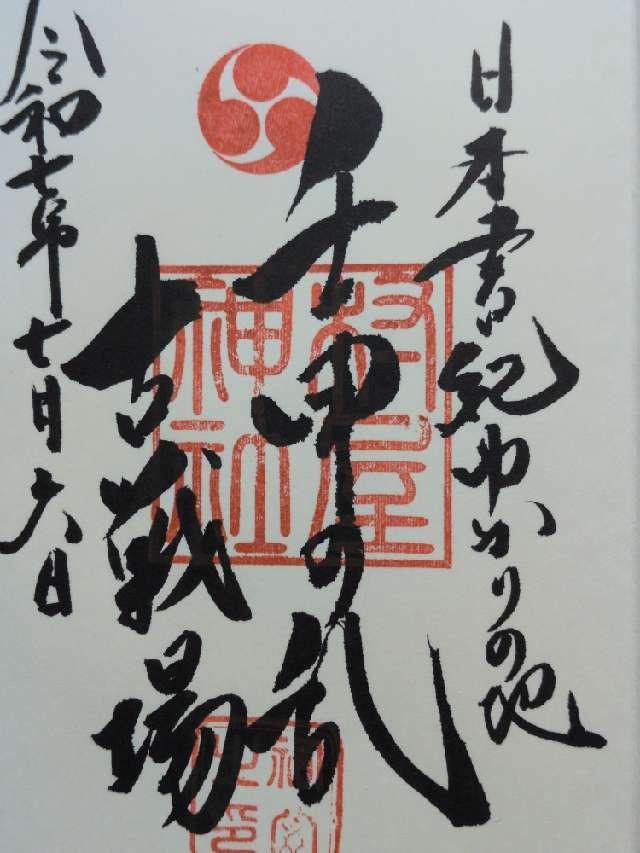 日本書紀ゆかりの地
壬申の乱
古戦場
令和七年七月六日
村屋神社